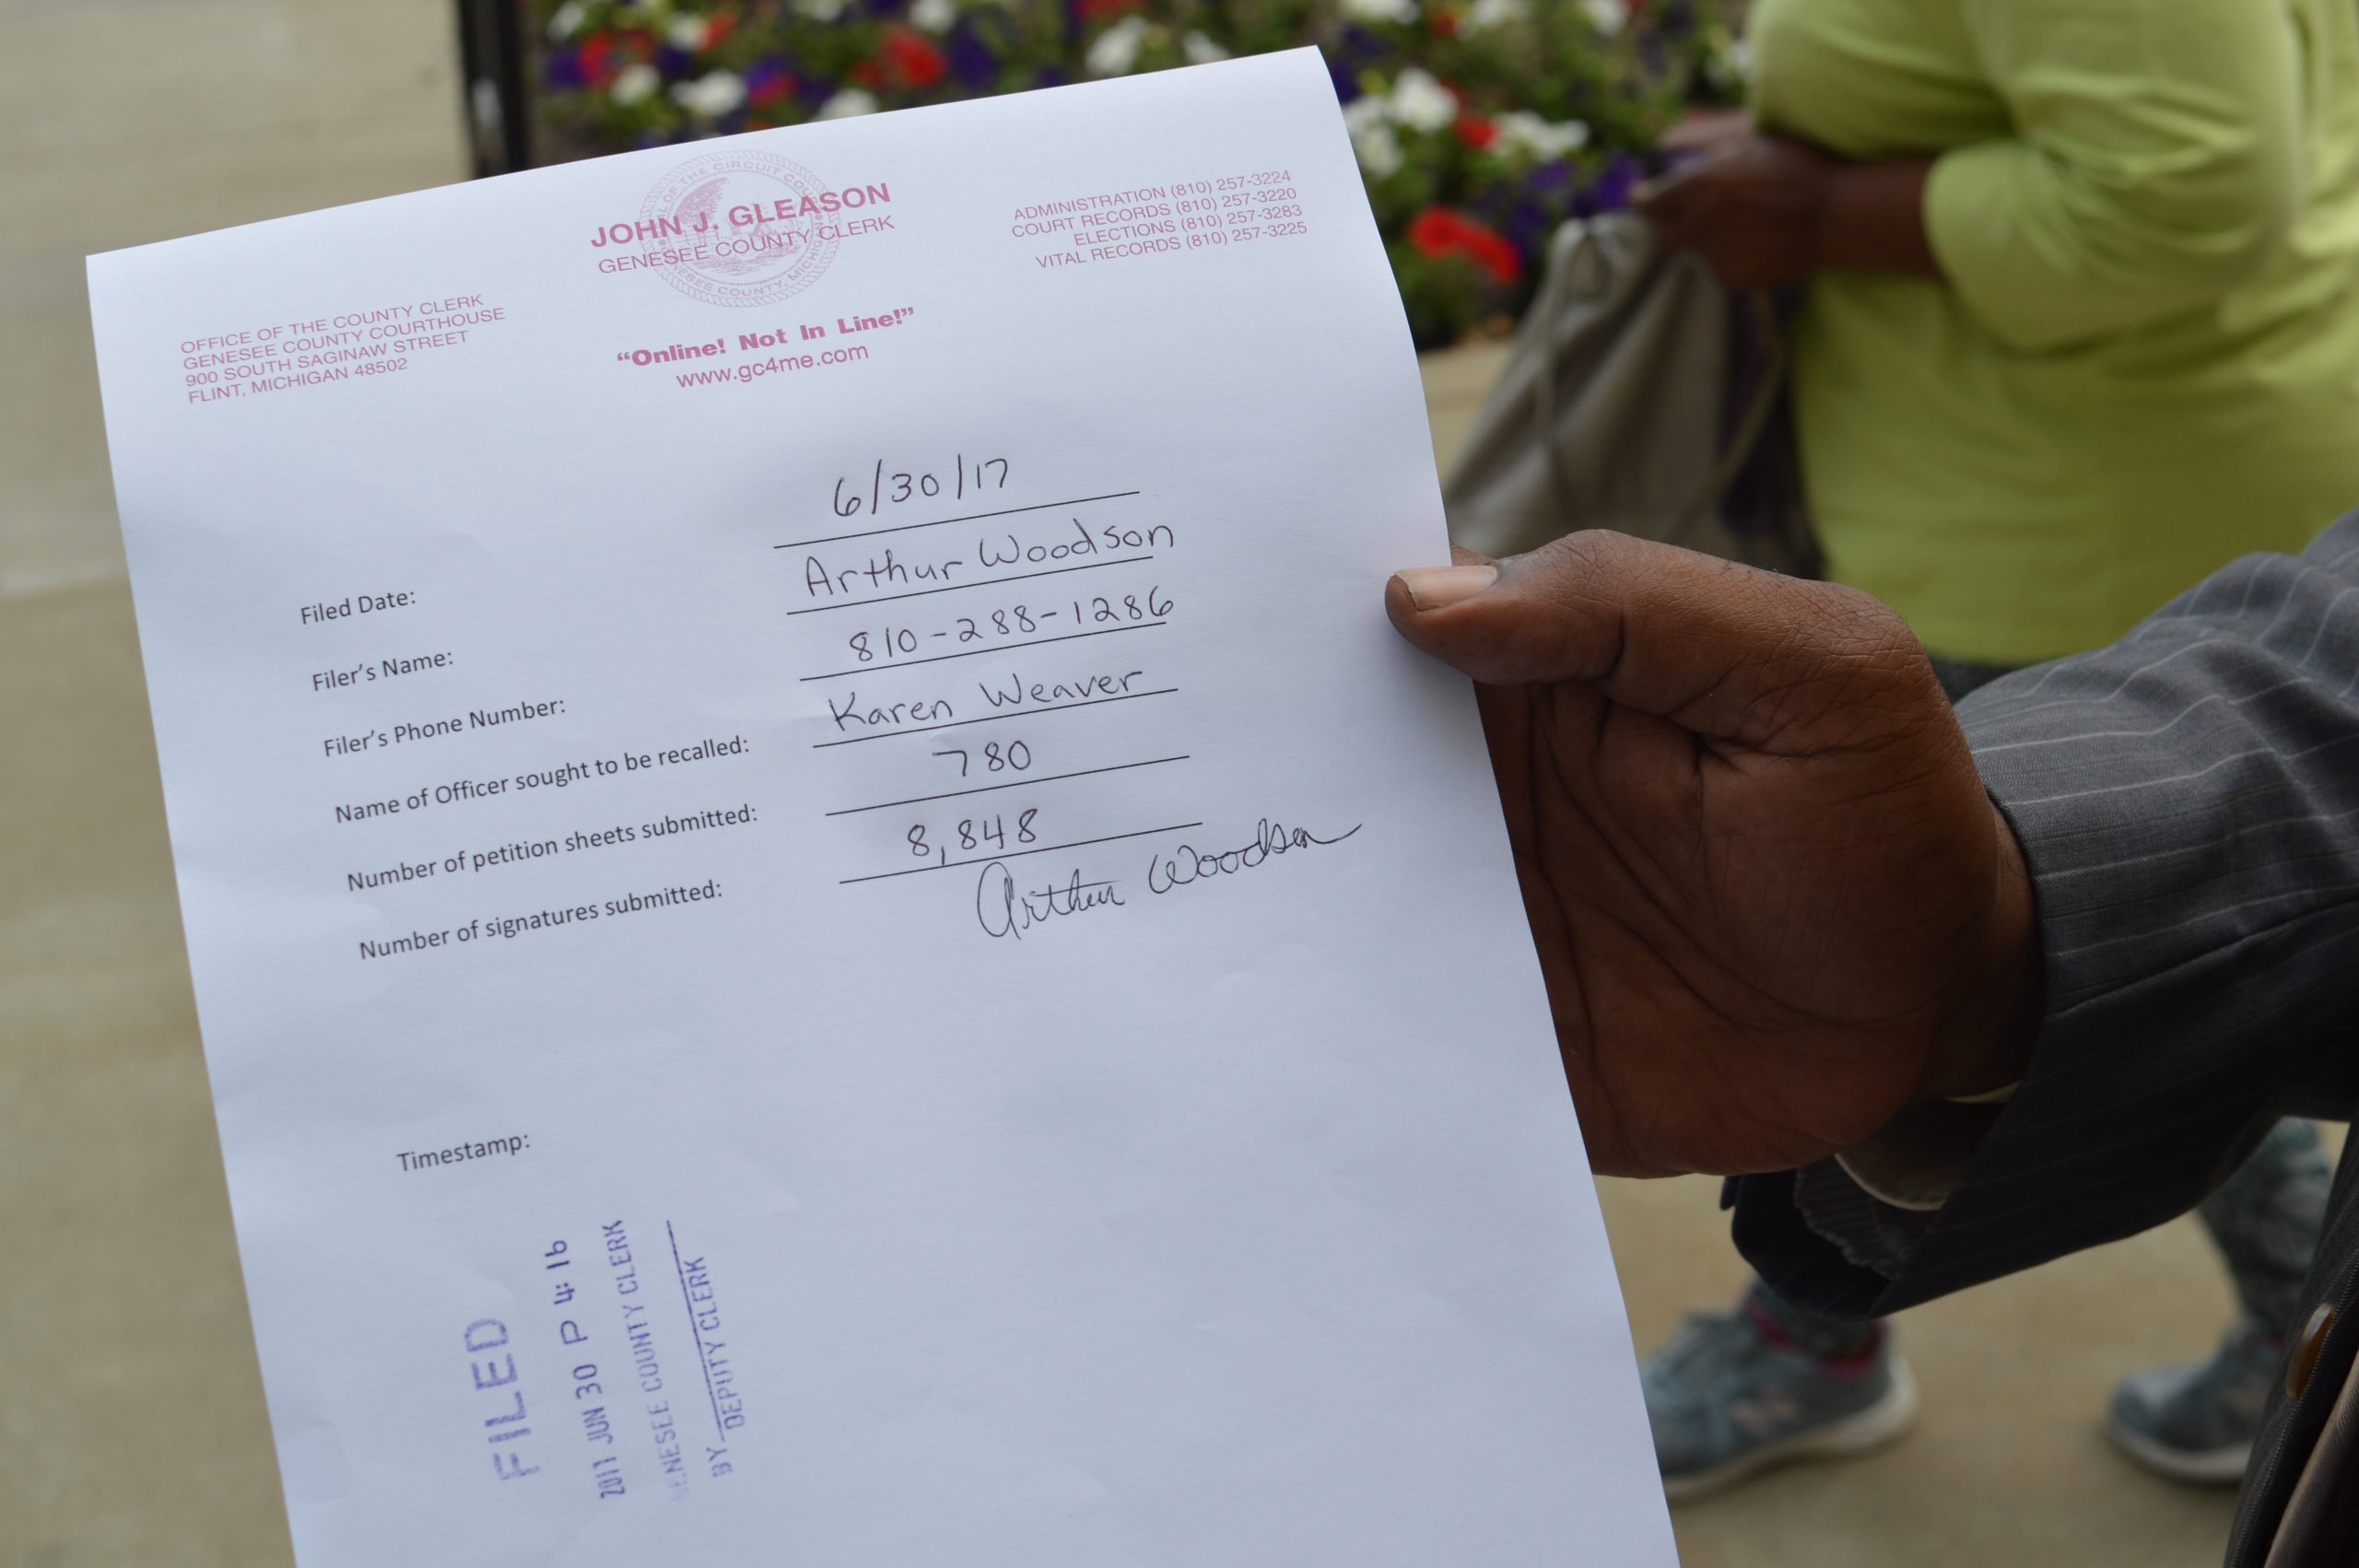 OF THE CIRCUIT COU
JOHN J. GLEASON
GENESEE COUNTY CLERK
GENESEE COUNTY, MICHIGAN
"Online! Not In Line!"
www.gc4me.com
OFFICE OF THE COUNTY CLERK
GENESEE COUNTY COURTHOUSE
900 SOUTH SAGINAW STREET
FLINT, MICHIGAN 48502
ADMINISTRATION (810) 257-3224
COURT RECORDS (810) 257-3220
ELECTIONS (810) 257-3283
VITAL RECORDS (810) 257-3225
Filed Date: 6/30/17
Filer's Name: Arthur Woodson
Filer's Phone Number: 810-288-1286
Name of Officer sought to be recalled: Karen Weaver
Number of petition sheets submitted: 780
Number of signatures submitted: 8,848
Arthur Woodson
Timestamp:
FILED
2017 JUN 30 P 4:16
GENESEE COUNTY CLERK
BY
DEPUTY CLERK